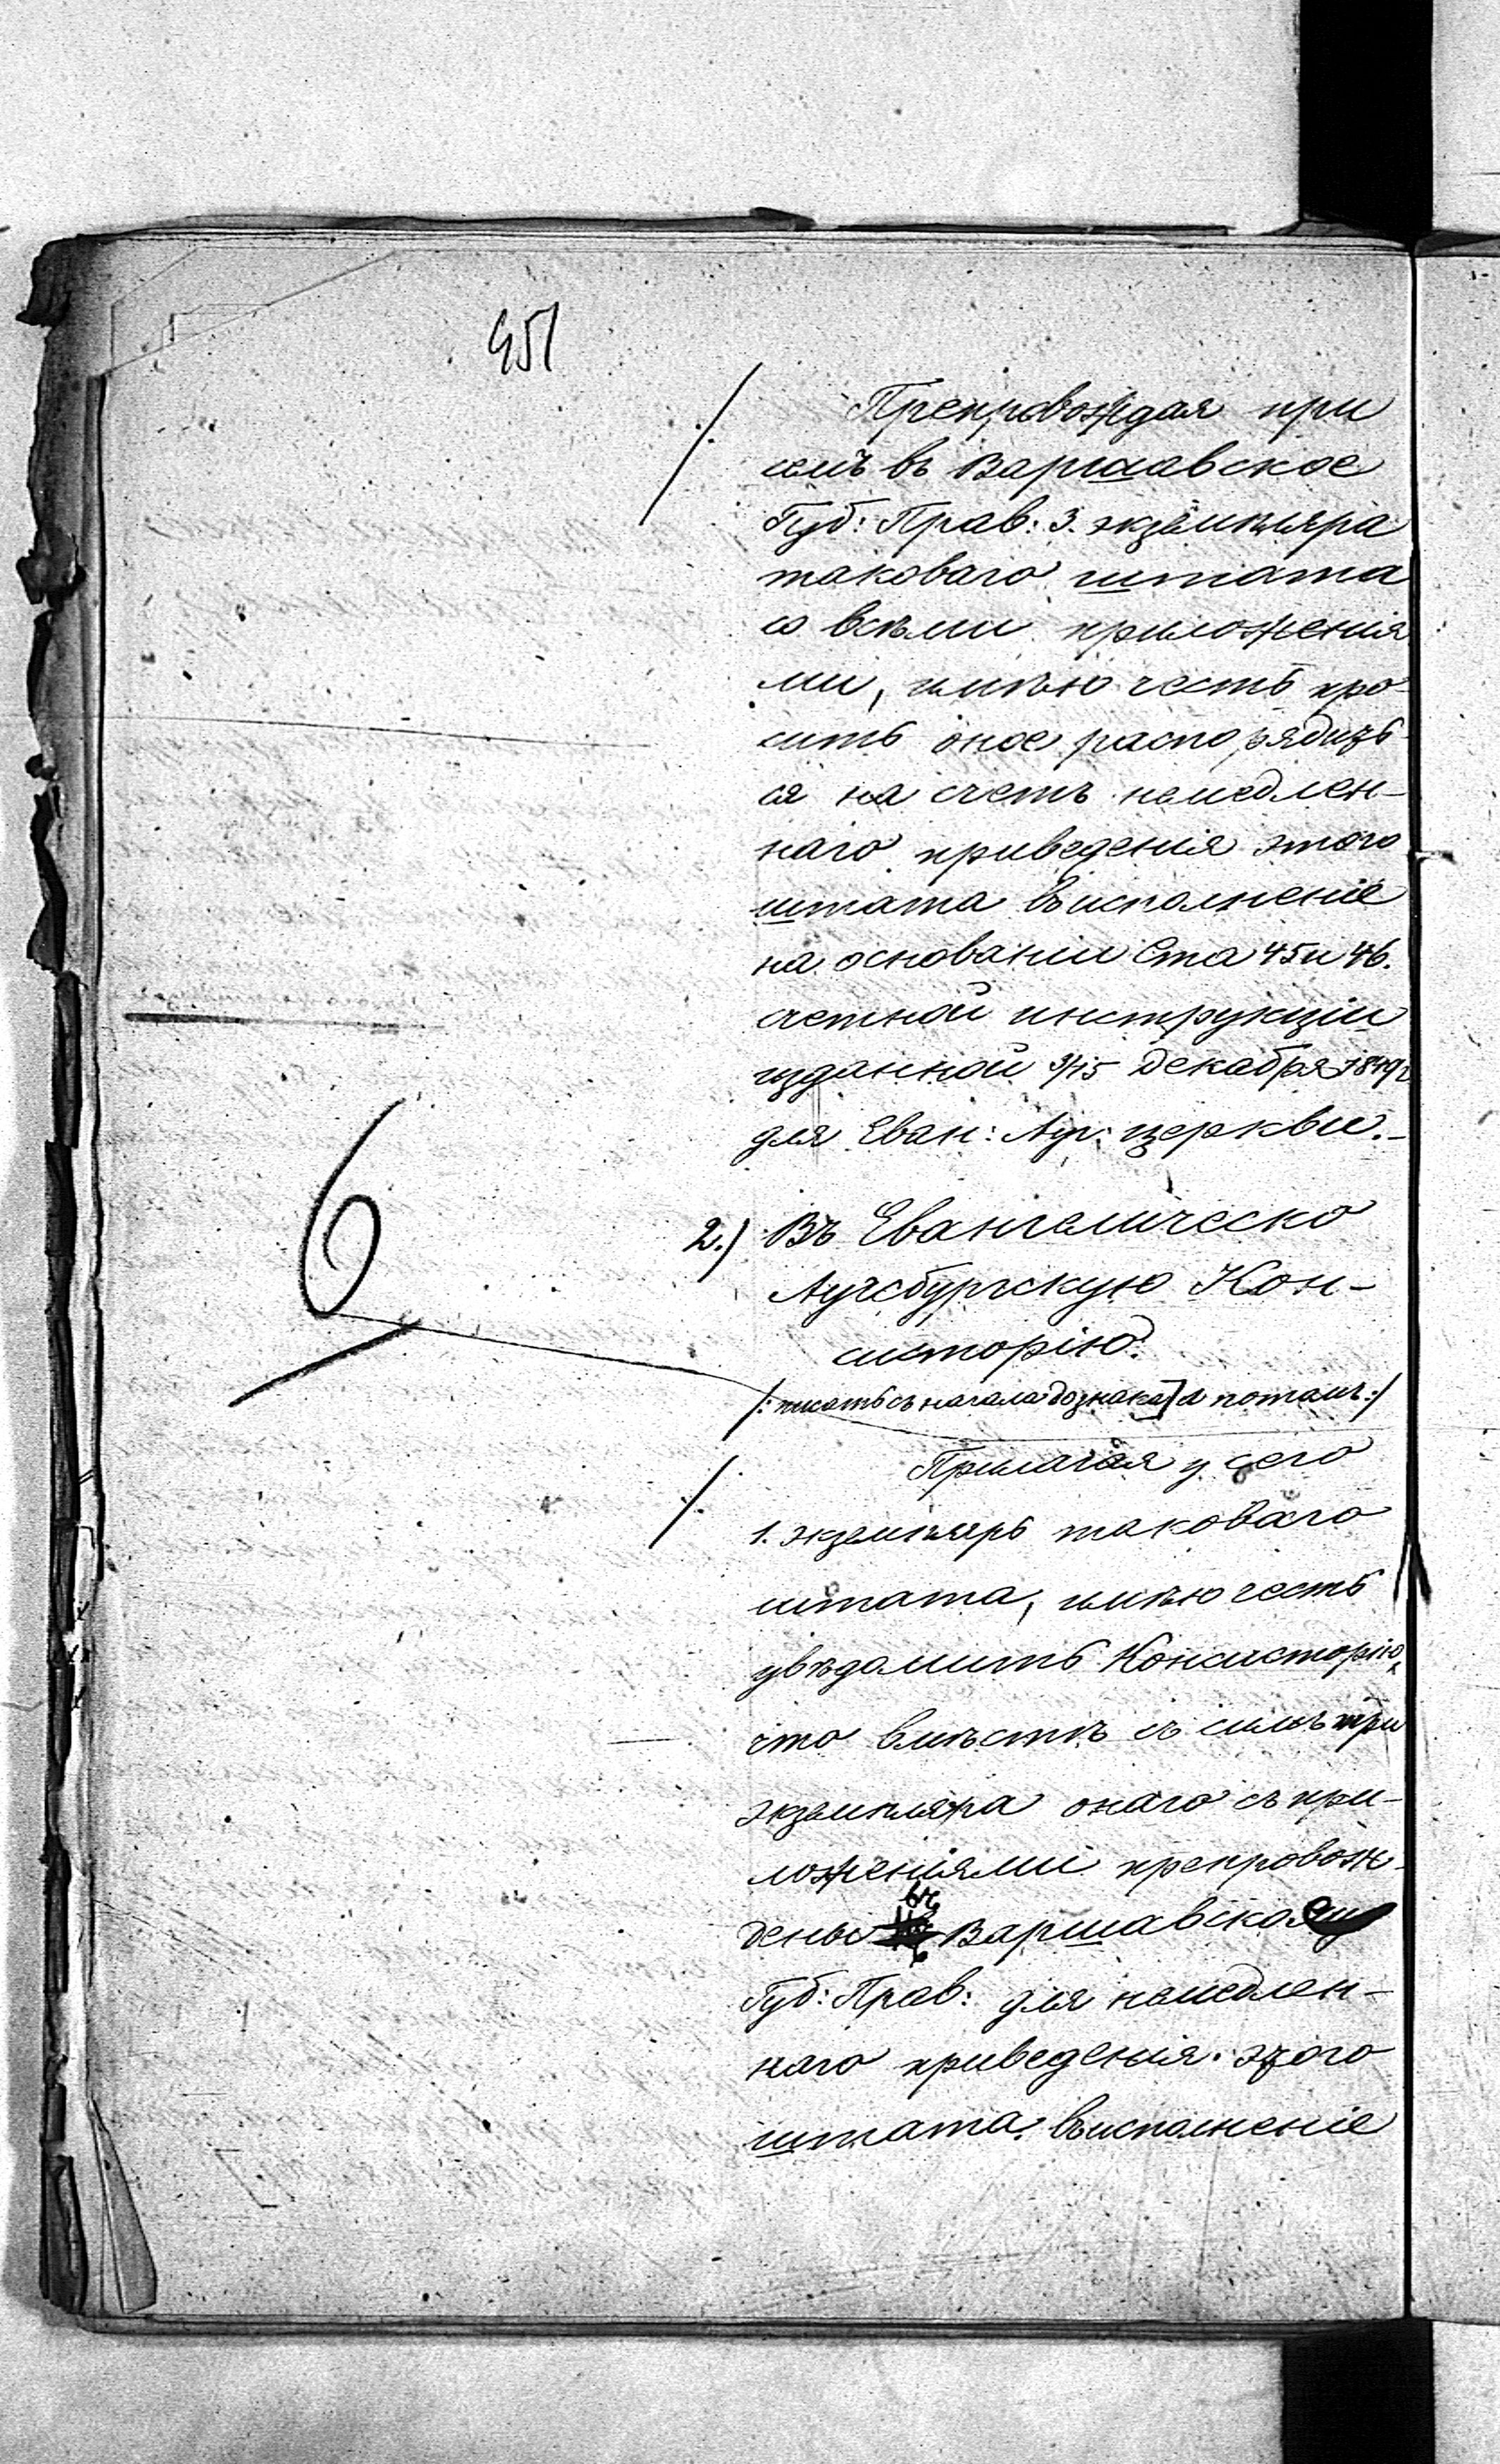 451
Препровождая при
семъ въ Варшавское
Губ: Прав: 3. экземпляра
таковаго штата
со всѣми приложенія
ми, имѣю честь про-
сить оное распорядить-
ся на счетъ немедлен-
наго приведенія этого
штата въ исполненіе
на основаніи Ста 45 и 46.
счетной инструкціи
изданной 3/15 Декабря 1849 г
для Еван: Ауг: церкви.-
6
2.) Въ Евангелическо
Аугсбургскую Кон-
систорію.
/: писать съ начала до знака ] а потомъ :/
Прилагая у сего
1. экземпляръ таковаго
штата, имѣю честь
увѣдомить Консисторію,
что вмѣстѣ съ симъ три
экземпляра онаго съ при-
ложеніями препровож-
дены въ Варшавское
Губ: Прав: для немедлен-
наго приведенія этого
штата въ исполненіе